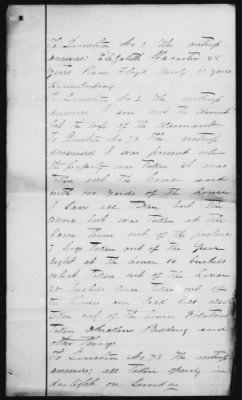 To Question No 1 the witness
answers; Elizabeth
years Floyd County 11 years
Housekeeping
To Question No 2 the witness
answers I am not the Claimant
but the wife of the claimant
To Question No 70 the witness
answers; I was present when
the property was taken it was
taken out the home and
with 100 yards of the house
I saw all taken but the
were but was taken at the
same time out of the pasture
7 hogs taken out of the pen
right at the house 10 bushels
wheat taken out of the house
25 bushels corn taken out of
the house one sack salt also
taken out of the house Potatoes
taken Chickens Bedding and
other things
To Question No 73 the witness
answers; all taken openly in
daylight on Sunday